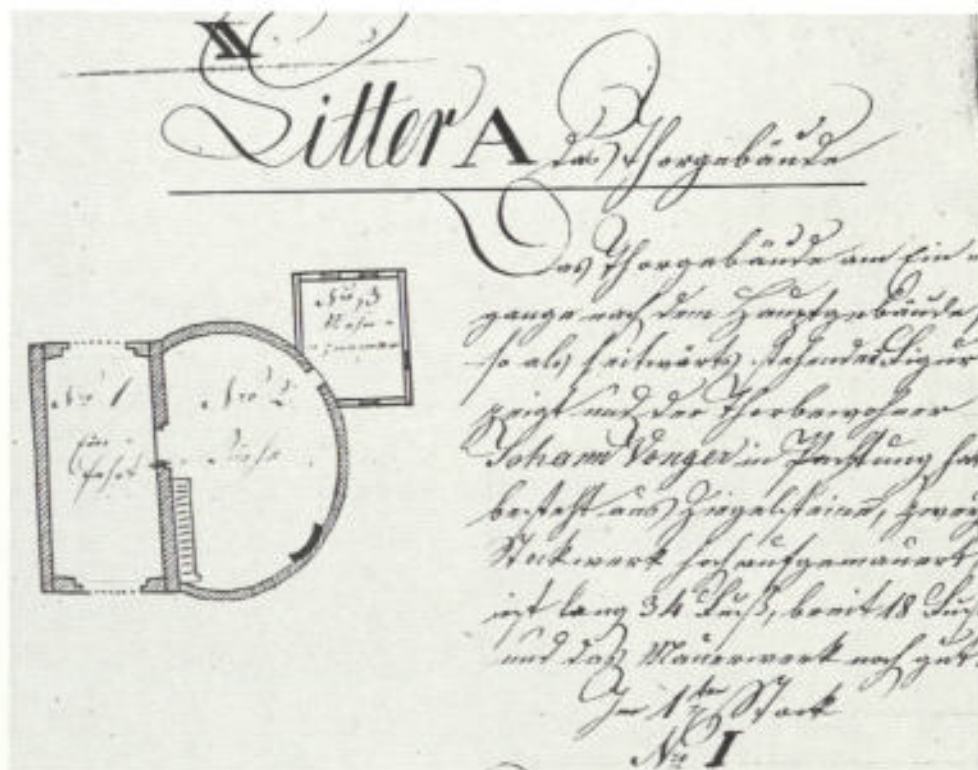 Litter A das Thorgebäude
Das Thorgebäude am Ein
gange nach dem Hauptgebäude
so als seitwärts stehende Figur
zeigt und der Thorbewohner
Johann Venger in Pachtung ha
besteht aus Ziegelsteine, zwei
Stockwerk hoch aufgemauert
ist lang 34 Fuß, breit 18 Fuß
und das Mauerwerk noch gut
Im 1ten Stock
Nro I
Nro 3
zimmer
Nro 1
Ein-
fahrt
Nro 2
Küche